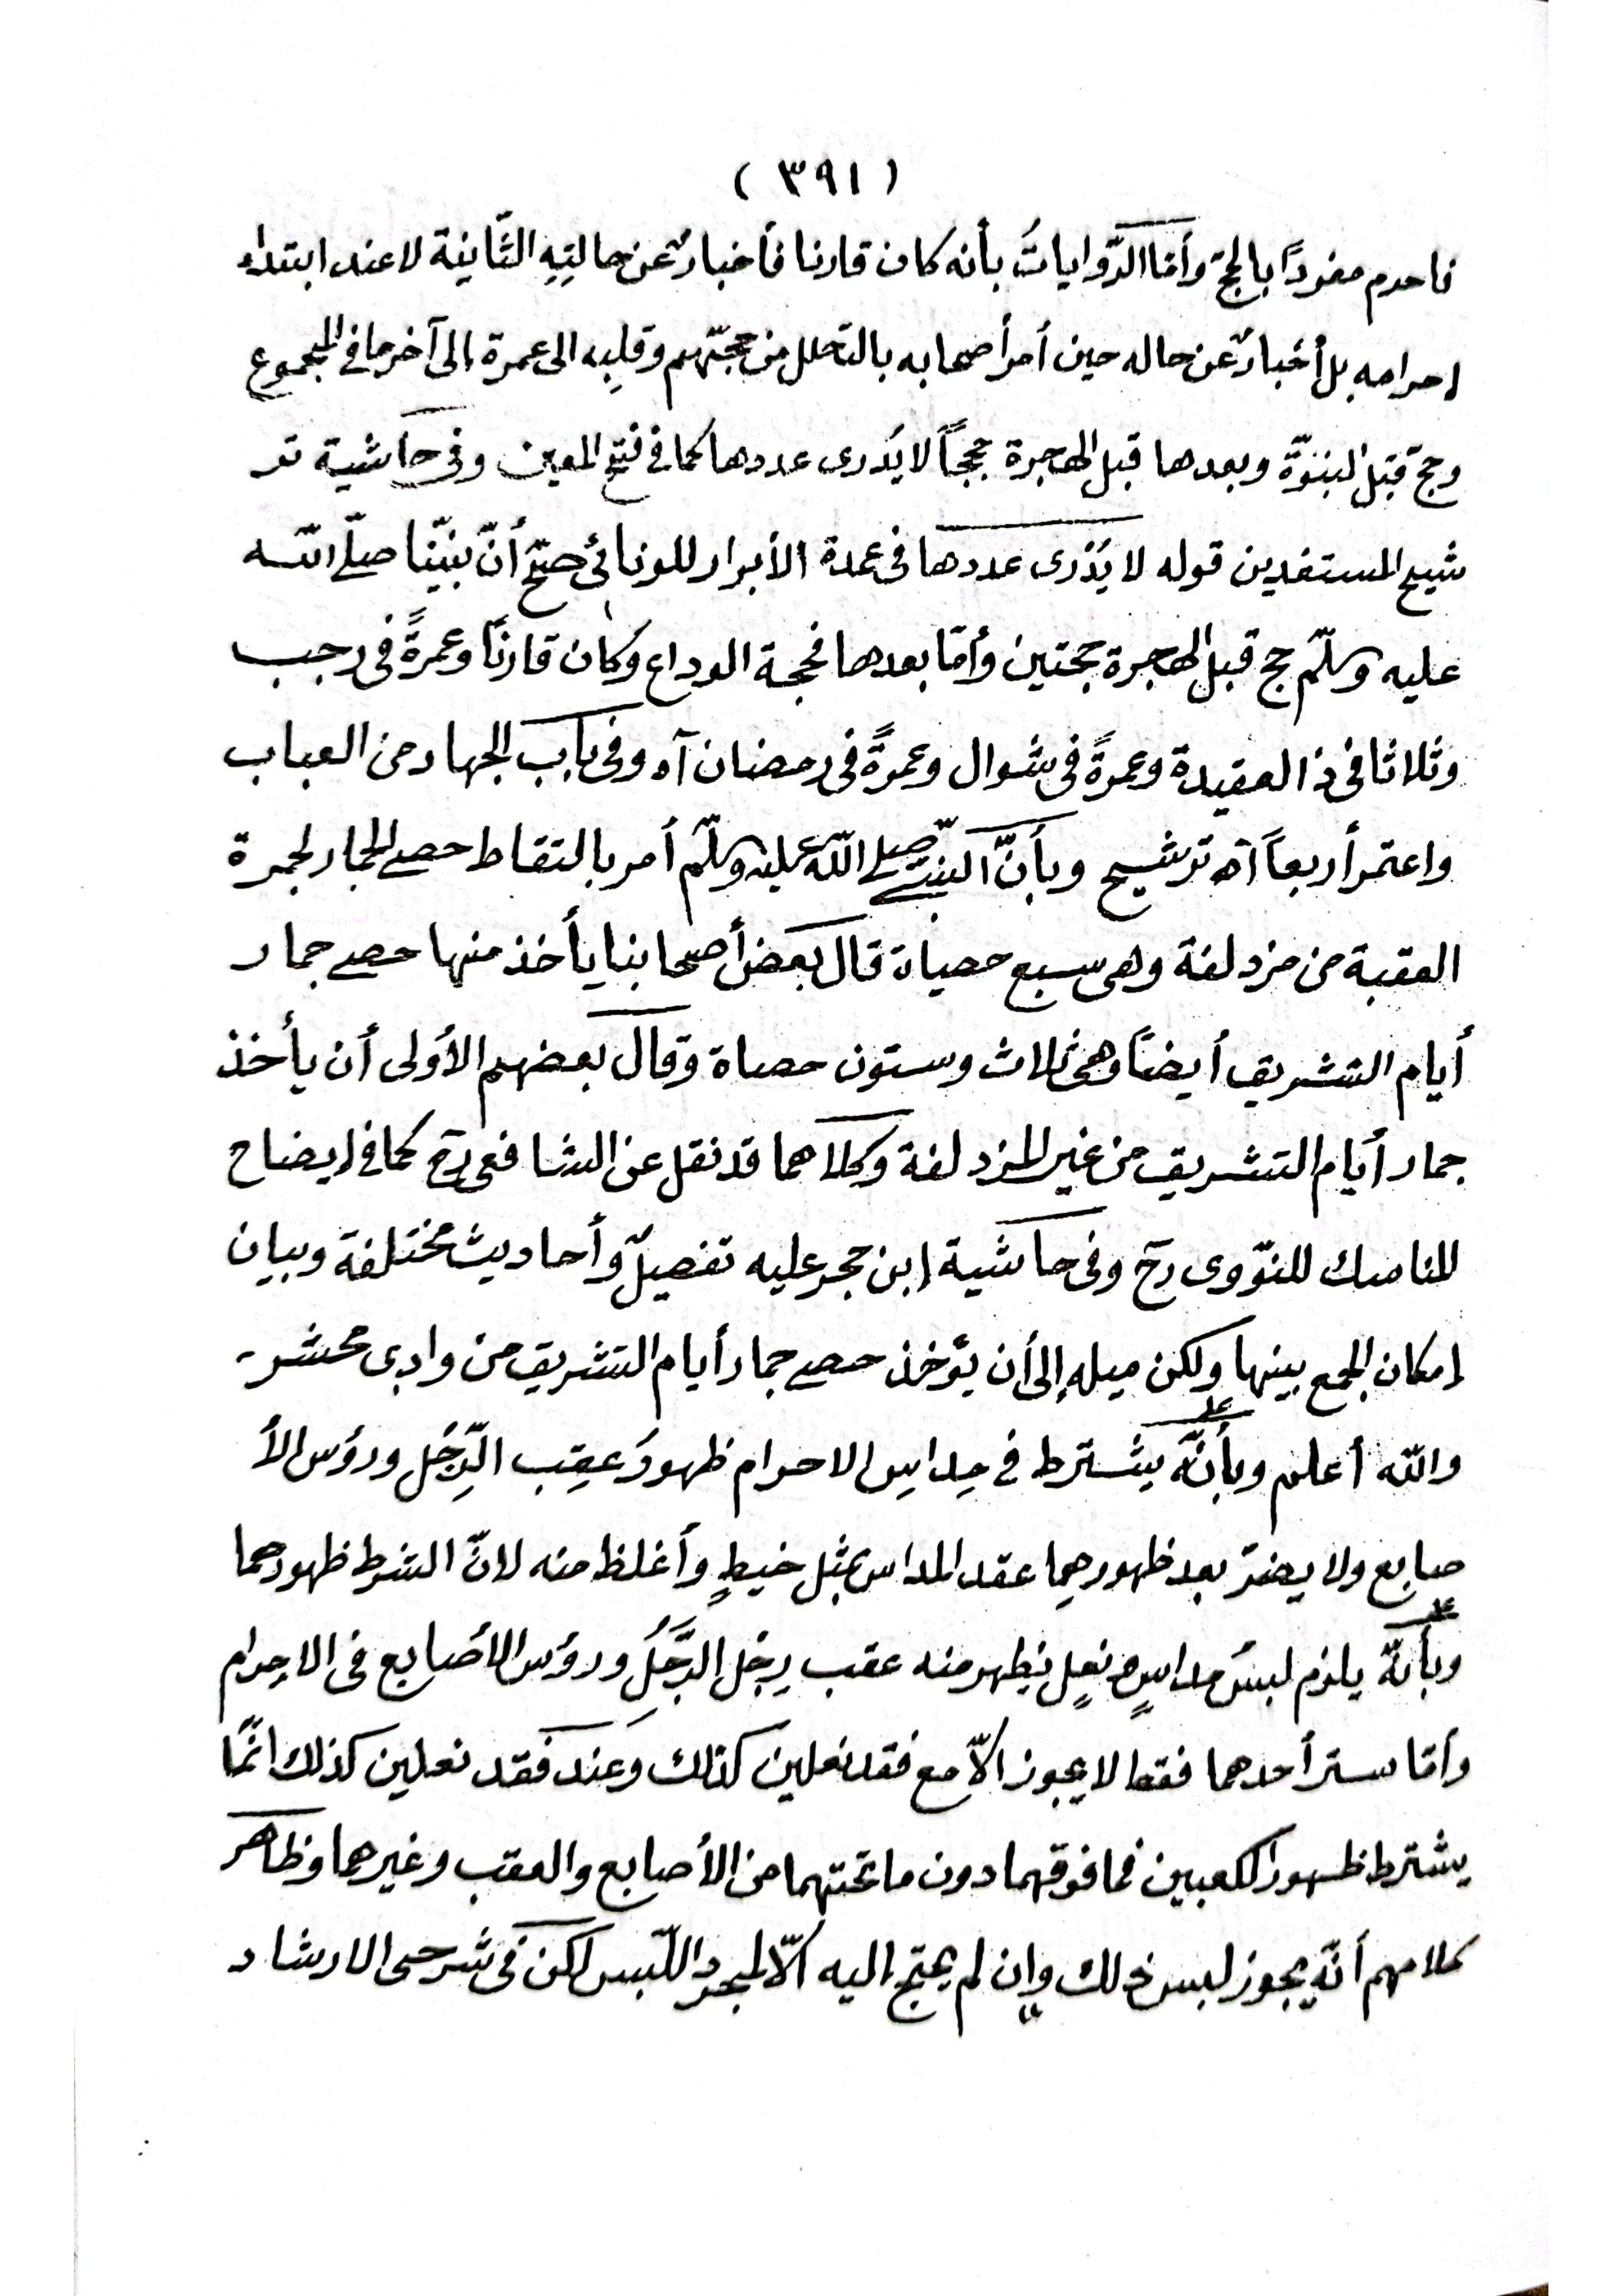 ( ٣٩١ )
فاحرم مفردًا بالحجّ وأمّا الرّواياتُ بأنه كان قارنا فأخبارٌ عن حالتِهِ الثّانية لا عند ابتداء
احرامه بل أخبارٌ عن حاله حين أمر أصحابه بالتحلل من حجّتهم وقلبِه الى عمرة إلى آخر ما في المجموع
وحجّ قبل النبوّة وبعدها قبل الهجرة حججًا لا يُدرى عددها كما في فتح المعين وفى حاشية تر
شيح المستفدين قوله لا يُدْرى عددها فى عمدة الأبرار للونائى صحّ أنّ نبيّنا صلّى الله
عليه وسلّم حج قبل الهجرة حجتين وأمّا بعدها فحجة الوداع وكان قارنًا وعمرةً فى رجب
وثلاثا فى ذا لعقيدة وعمرةً فى شوال وعمرةً فى رمضان آه وفى باب الجهاد من العباب
واعتمر أربعاً آه ترشيح وبأنّ النبىّ صلى الله عليه وسلّم أمر بالتقاط حصى الجمار لجمرة
العقبة من مزدلفة وهى سبع حصياة قال بعض أصحابنا يأخذ منها حصى جمار
أيام التشريق أيضاً وهى ثلاث وستون حصاة وقال بعضهم الأولى أن يأخذ
جمار أيام التشريق من غير المزدلفة وكلاهما قد نقل عن الشافعى رح كما فى إيضاح
المناسك للنوّوى رح وفى حاشية إبن حجر عليه تفصيلٌ وأحاديث مختلفة وبيان
إمكان الجمع بينها ولكن ميله إلى أن يؤخذ حصى جمار أيام التشريق من وادى محشر -
والله أعلم وبأنّه يشترط فى مِداسِ الاحرام ظهورُ عقِب الرِّجْل ورؤس الأ
صابع ولا يضرّ بعد ظهورهِما عقد المداس بمثل خيطٍ وأغلظ منه لانّ الشرط ظهورهما
وبأنّه يلزم لبسُ مداسٍ نعلٍ يظهر منه عقب رِجْل الرَّجُلِ ورؤس الأصابع فى الاحرام
وأمّا ستر أحدهما فقط لا يجوز الاّ مع فقد نعلين كذلك وعند فقد نعلين كذلك انّما
يشترط ظهور الكعبين فما فوقهما دون ما تحتهما من الأصابع والعقب وغيرهما وظاهر
كلامهم أنّه يجوز لبس ذلك وإن لم يحتج إليه الاّ لمجرد اللّبس لكن فى شرحى الارشاد